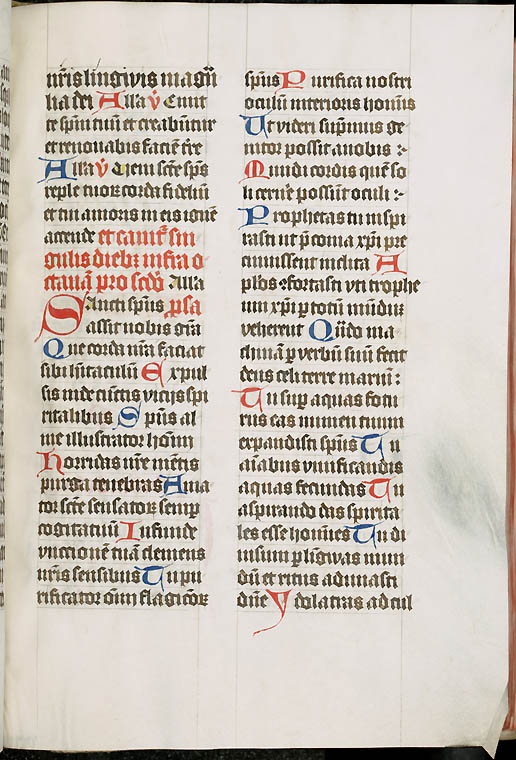 nr̄is lingwis magn̄
lia dei Alla v̄ Emit
te spm̄ tuū et creabūtur
et renouabis faciē tr̄e
Alla v̄ Veni sc̄te sp̄s
reple tuoꝝ corda fideliū
et tui amoris in eis ignē
accende et canit̄ sin
gulis diebꝫ infra o
ctauam pro scd̄o Alla
Sancti sp̄us p̄sa
assit nobis gr̄a
Que corda nr̄a faciat
sibi hitaculū Expul
sis inde cūctis vicijs spi
ritalibus Sp̄us al
me illustrator hoīm
Horridas nr̄e mentis
purga tenebras Ama
tor sc̄te sensatoꝝ semp̄
cogitatuū Infunde
vnctionē tuā clemens
nr̄is sensibus Tu pu
rificator oīm flagicioꝝ
sp̄us Purifica nostri
oculū interioris homīs
Ut videri sup̄mus ge
nitor possit a nobis :~
Mundi cordis quē so
li cerne possūt oculi :~
Prophetas tu inspi
rasti ut p̄conia xp̄i pre
cinuissent inclita A
plōs ꝯfortasti vti trophe
um xp̄i ꝑ totū mūdū
veherent Qn̄do ma
chinam ꝑ verbū suū fecit
deus celi terre mariū :
Tu sup̄ aquas fotu
rus eas numen tuum
expandisti sp̄us Tu
aīabus viuificandis
aquas fecundas Tu
aspirando das spirita
les esse homīes Tu di
uisum ꝑ līgwas mun
dū et ritus adunasti
dn̄e Ydolatras ad cul